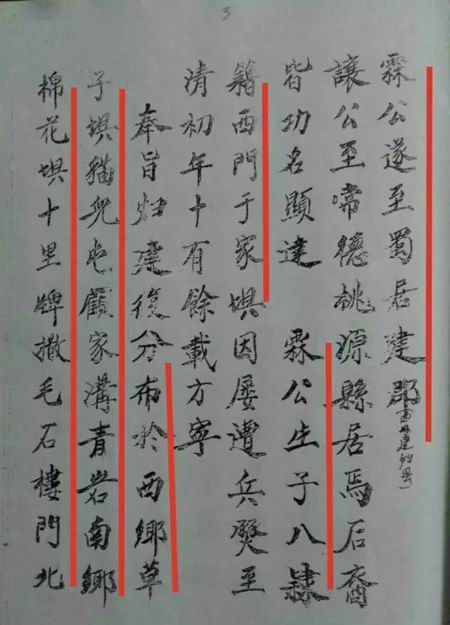 3
霖公遂至蜀居建郡
讓公至常德桃源縣居焉后裔
皆功名顯達 霖公生子八隸
籍西門于家垻因屢遭兵燹至
清初年十有餘載方寧
奉旨归建復分布於西鄉草
子垻貓兒屯顧家溝青岩南鄉
棉花垻十里牌撒毛石樓門北